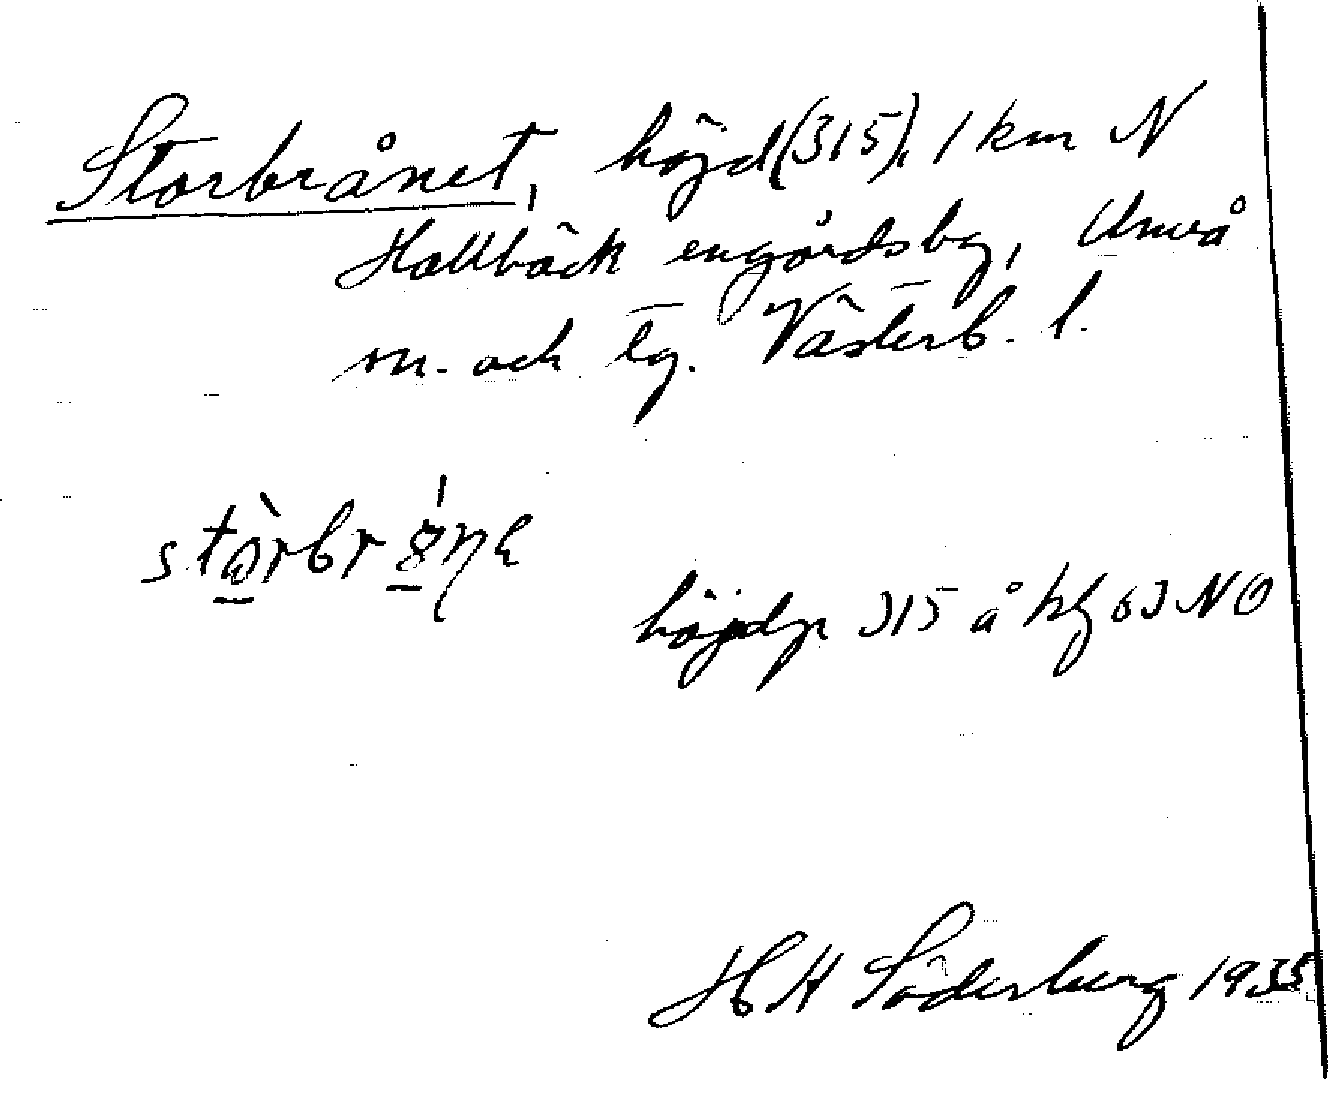 Storbrånet, höjd (315), 1 km N
Hallbäck engårdsby, Umeå
sn. och tg. Västerb. l.
höjdp 315 å kbl 63 NO
H H Söderberg 1935